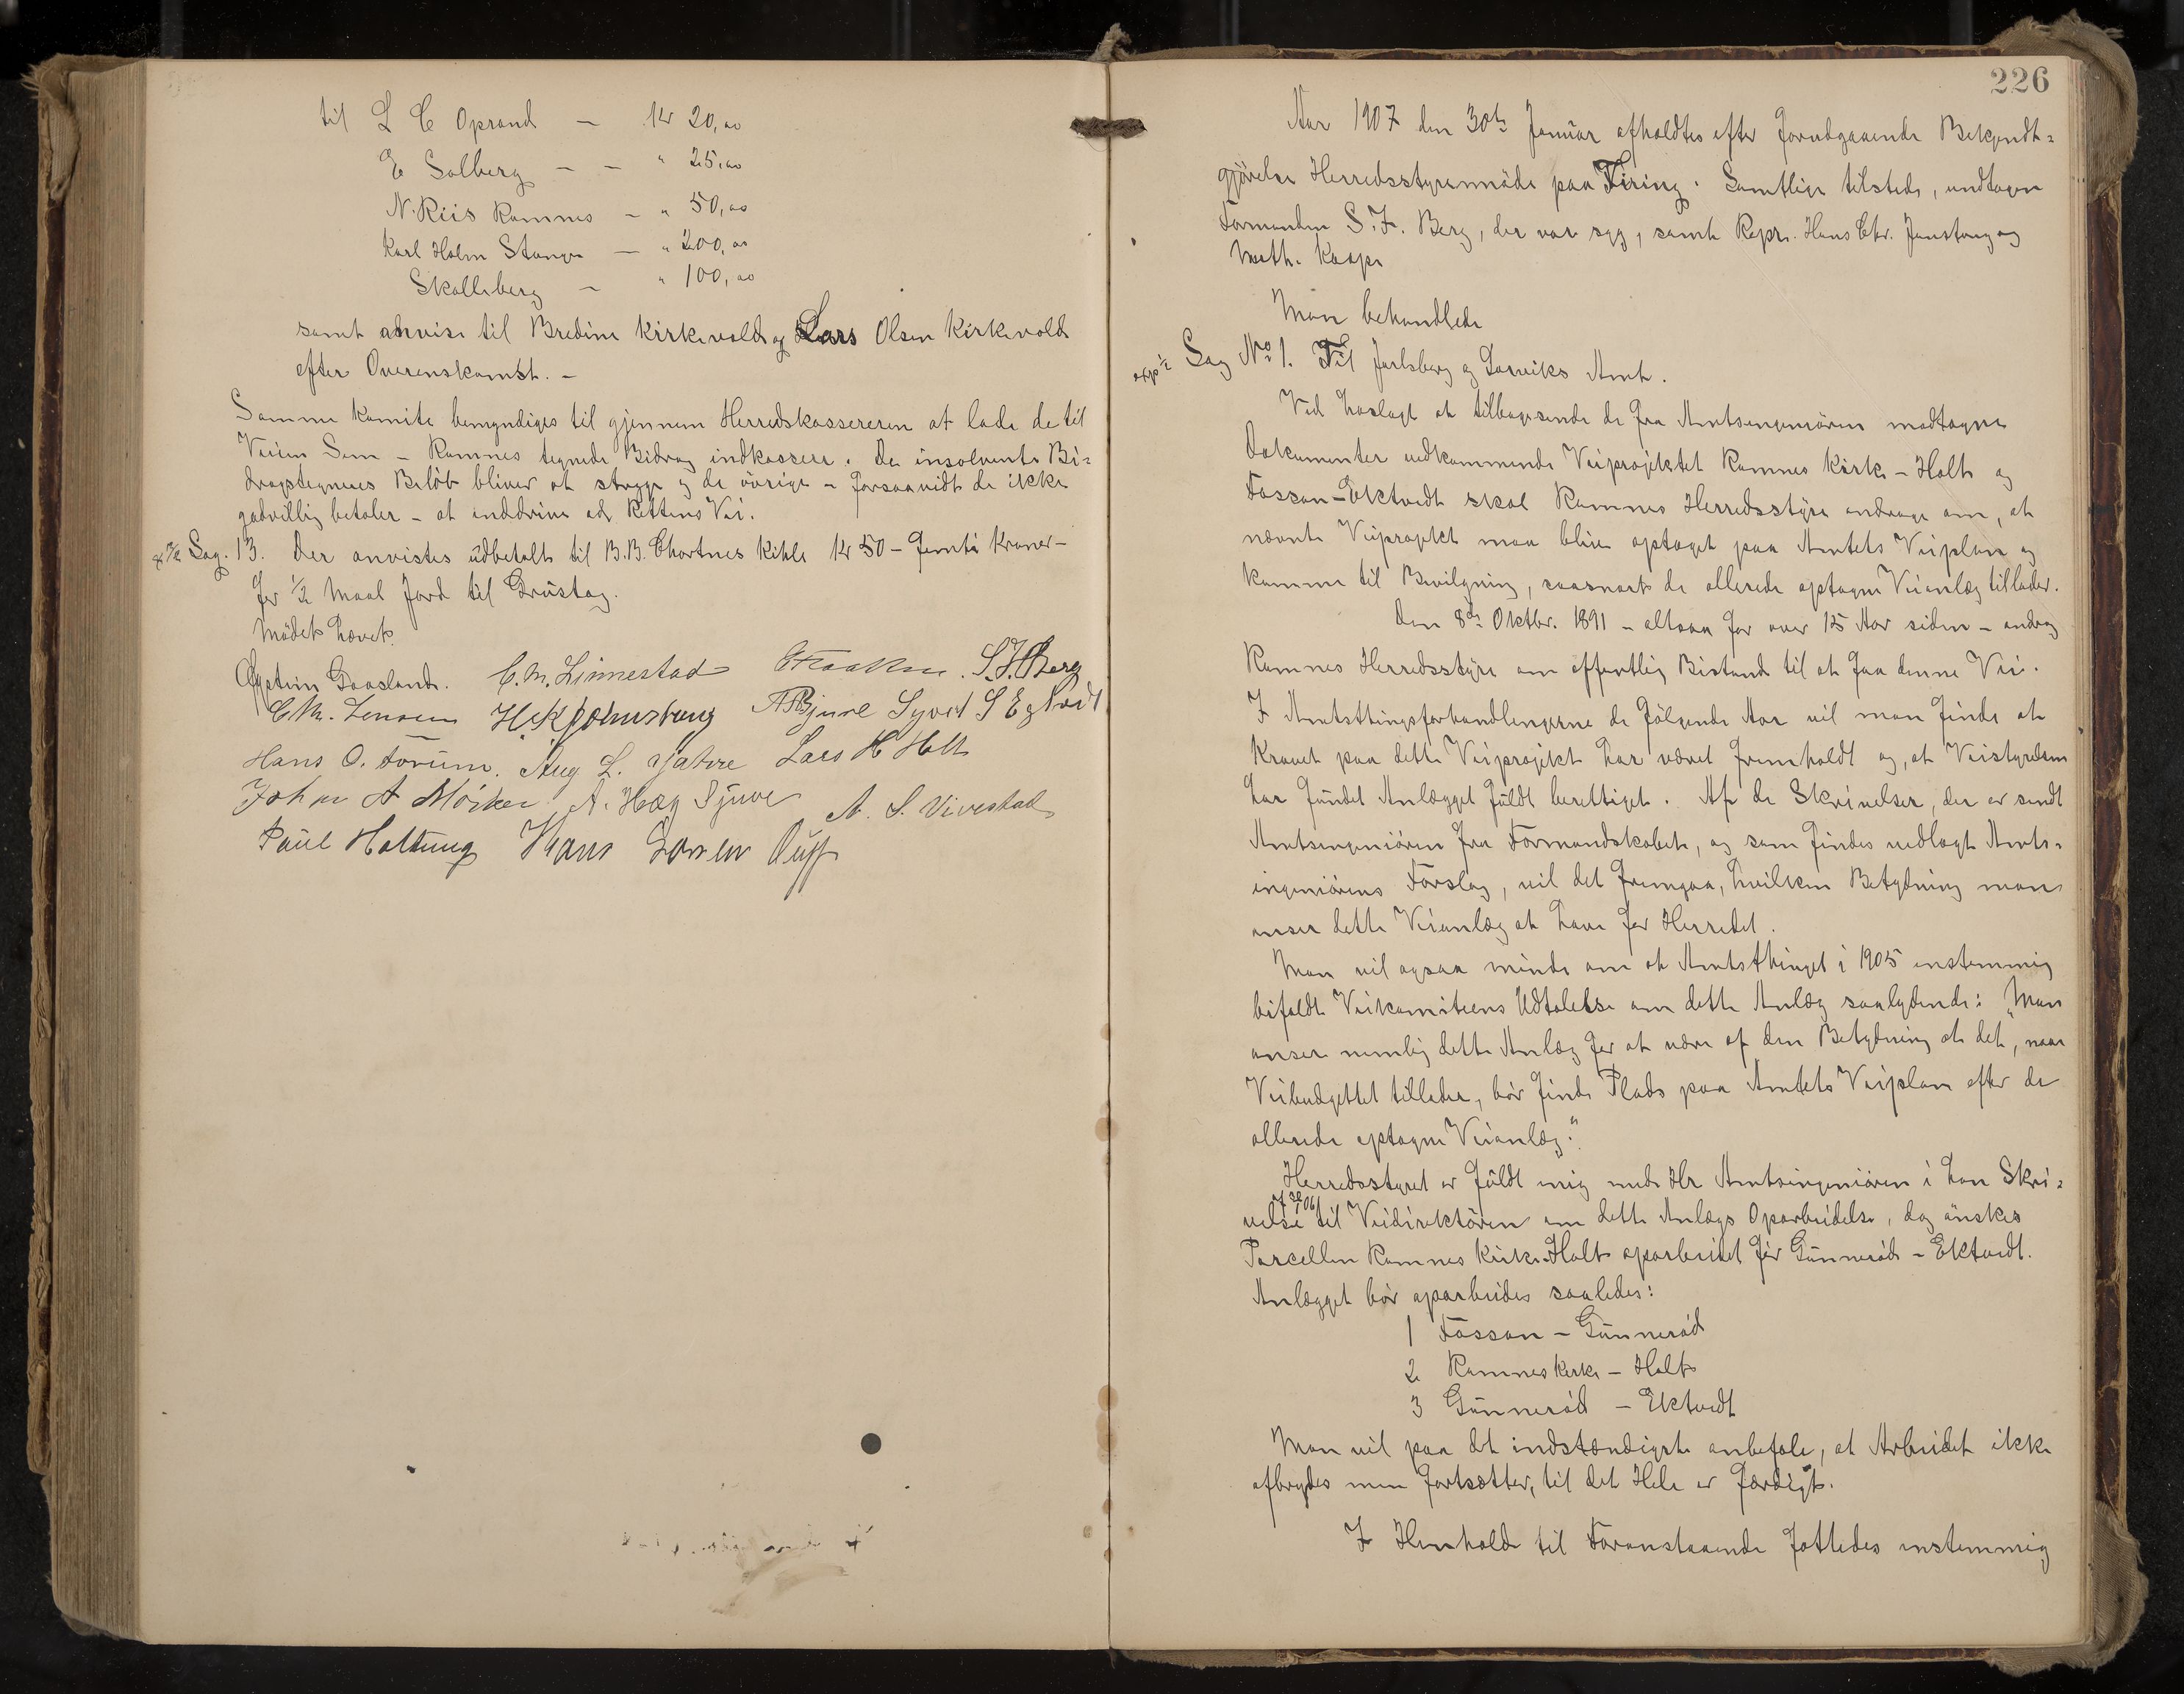 til L C Oprand — Kr 20,00
E Solberg — — " 25,00
N. Riis Ramnes — " 50,00
Karl Holm Stange — " 200,00
Skalleberg — " 100,00
samt anvise til Bredine Kirkevold og Lars Olsen Kirkevold
efter Overenskomst. —
Samme Komite bemyndiges til gjennem Herredskassereren at lade de til
Veien Sem — Ramnes tegnede Bidrag indkassere. De insolvente Bi-
dragstegneres Beløb bliver at stryge og de øvrige — forsaavidt de ikke
godvillig betaler — at inddrive ad Rettens Vei.
Sag. 13. Der anvistes udbetalt til B.B. Chortnes Kihle Kr 50 — femti Kroner —
for 1/2 Maal Jord til Grustag.
Mødet hævet.
Øystein Gaasland. C. M. Linnestad S. F. Berg
Chr. Jensen A Bjune Syvert S Egtvedt
Hans O. Forum. Aug L. Jahre Lars H Holt
Johan A Mörken A. Hæg Sjuve A. S. Vivestad
Paul Holtung Hans Larsen
226
Aar 1907 den 30te Januar afholdtes efter forudgaaende Bekjendt-
gjörelse Herredsstyremöde paa Firing. Samtlige tilstede, undtagen
Formanden S. F. Berg, der var syg, samt Repr. Hans Chr. Jonstang og
Math. Kaape
Man behandlede
exp Sag No 1. Til Jarlsberg og Larviks Amt.
Ved hoslagt at tilbagesende de fra Amtsingeniøren modtagne
Dokumenter vedkommende Veiprojektet Ramnes Kirke — Holt og
Fossan — Ektvedt skal Ramnes Herredsstyre andrage om, at
nævnte Veiprojekt maa blive optaget paa Amtets Veiplan og
komme til Bevilgning, saasnart de allerede optagne Veianlæg tillader.
Den 8de Oktbr. 1891 — altsaa for over 15 Aar siden — androg
Ramnes Herredsstyre om offentlig Bistand til at faa denne Vei.
I Amtsthingsforhandlingerne de følgende Aar vil man finde at
Kravet paa dette Veiprojekt har været fremholdt og, at Veistyrelsen
har fundet Anlægget fuldt berettiget. Af de Skrivelser, der er sendt
Amtsingeniøren fra Formandskabet, og som findes vedlagt Amts-
ingeniørens Forslag, vil det fremgaa, hvilken Betydning man
anser dette Veianlæg at have for Herredet.
Man vil ogsaa minde om at Amtsthinget i 1905 enstemmig
bifaldt Veikomiteens Udtalelse om dette Anlæg saalydende: „Man
anser nemlig dette Anlæg for at være af den Betydning at det, naar
Veibudgettet tillader, bør finde Plads paa Amtets Veiplan efter de
allerede optagne Veianlæg."
Herredsstyret er fuldt enig med Hr Amtsingeniøren i han Skri-
velse til Veidirektøren om dette Anlægs Oparbeidelse, dog ønskes
Parcellen Ramnes Kirke–Holt oparbeidet før Gunnerød — Ektvedt.
Anlægget bør oparbeides saaledes:
1 Fossan — Gunnerød
2 Ramnes Kirke — Holt
3 Gunnerød — Ektvedt
Man vil paa det indstændigste anbefale, at Arbeidet ikke
afbrydes men fortsætter, til det Hele er færdigt.
I Henhold til Foranstaaende fattedes enstemmig